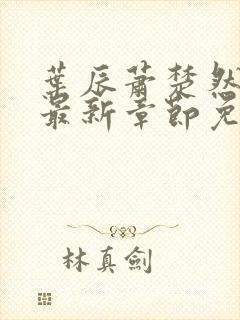 葉辰蕭楚然
最新章節免
林真劍